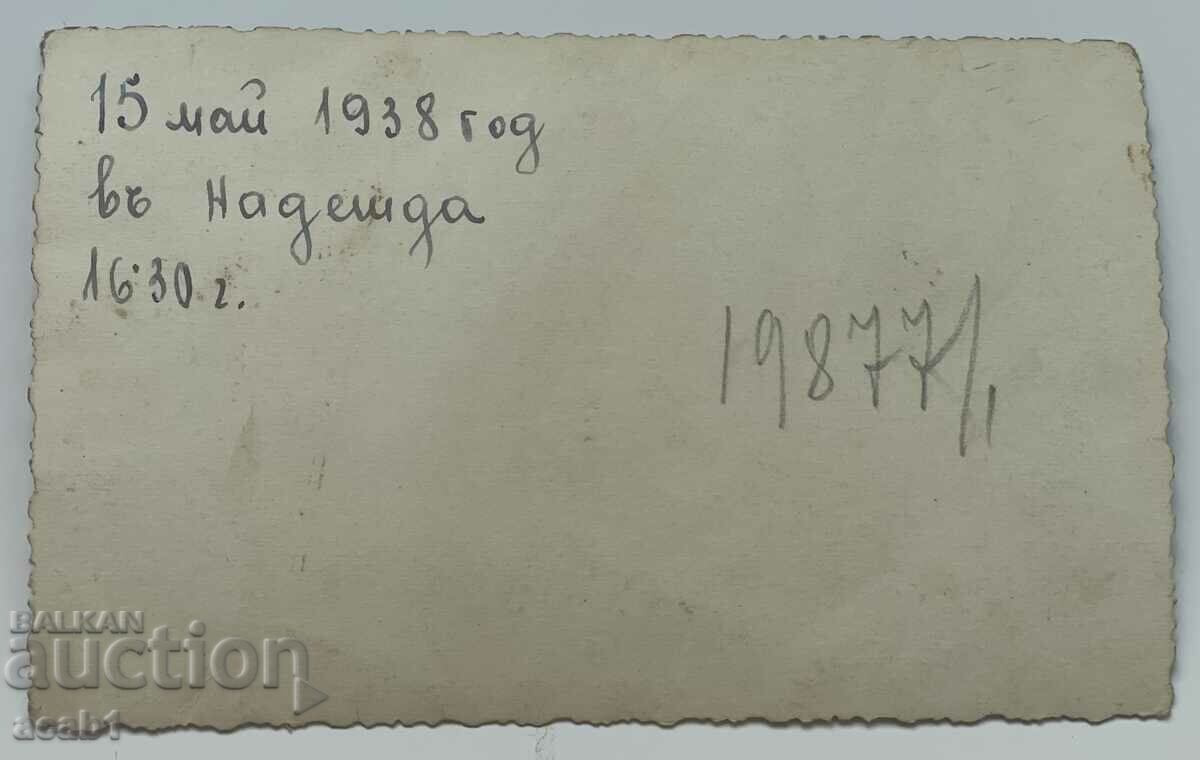 15 май 1938 год
въ Надежда
16·30 г.
19877/1
BALKAN
auction
acab1